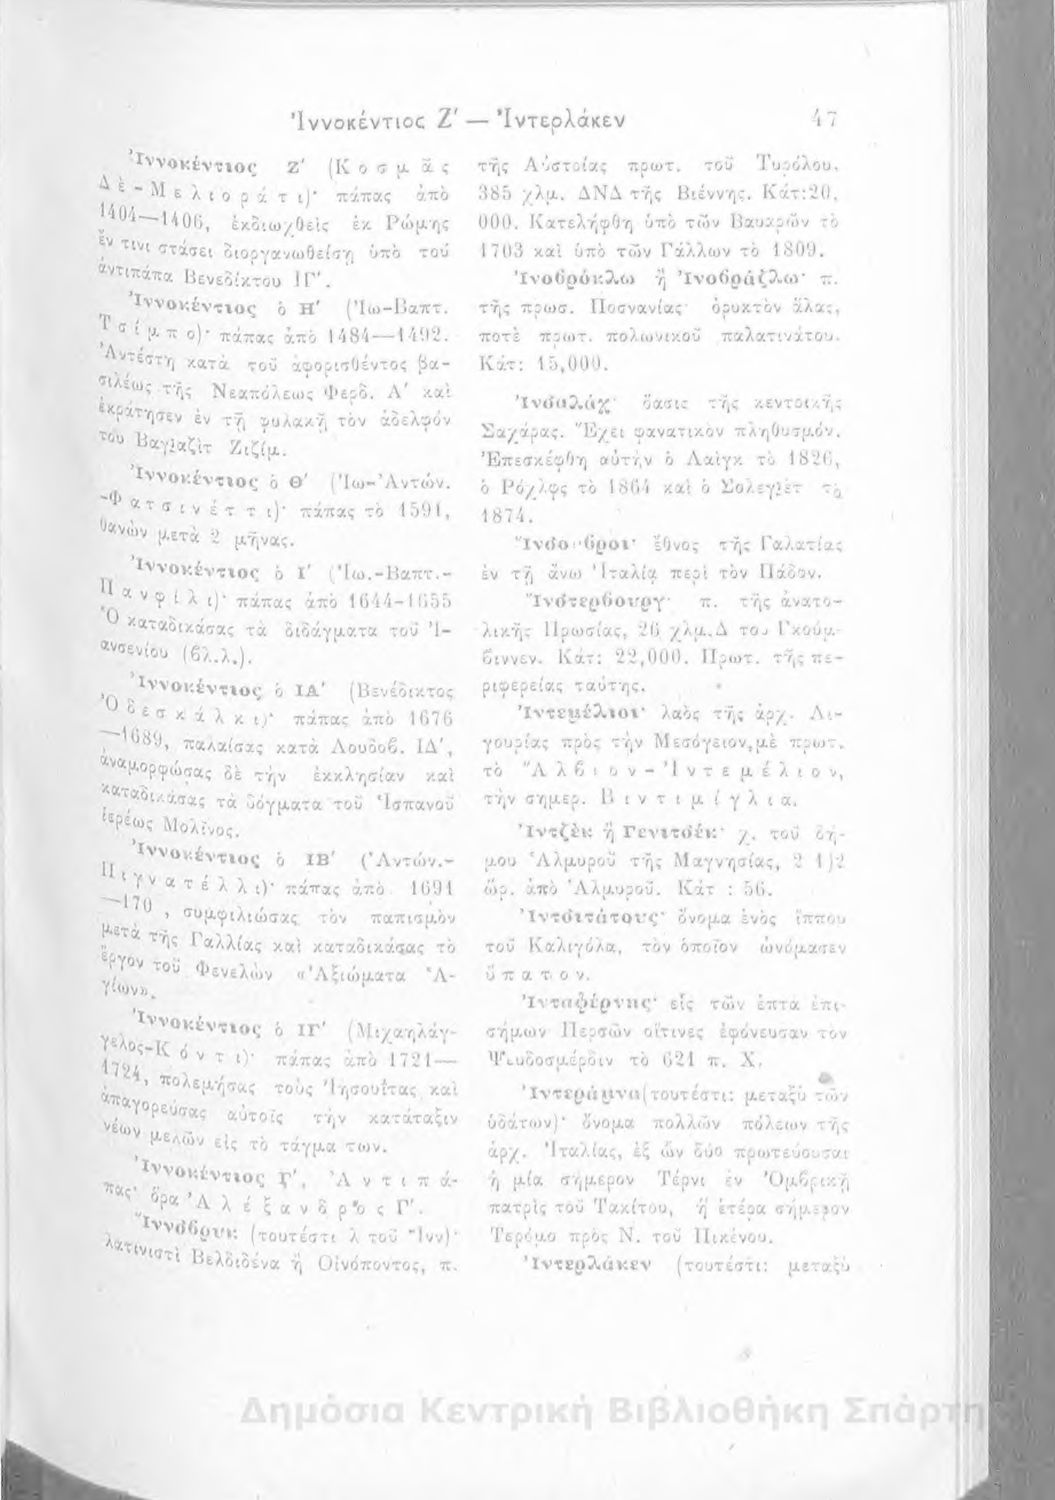 Ἰννοκέντιος Ζ' — Ἰντερλάκεν 47
Ἰννοκέντιος Ζ' (Κοσμᾶς
Δὲ-Μελιοράτι)· πάπας ἀπὸ
1404—1406, ἐκδιωχθεὶς ἐκ Ρώμης
ἔν τινι στάσει διοργανωθείσῃ ὑπὸ τοῦ
ἀντιπάπα Βενεδίκτου ΙΓ'.
Ἰννοκέντιος ὁ Η' (Ἰω-Βαπτ.
Τσίμπο)· πάπας ἀπὸ 1484—1492.
Ἀντέστη κατὰ τοῦ ἀφορισθέντος βα-
σιλέως τῆς Νεαπόλεως Φερδ. Α' καὶ
ἐκράτησεν ἐν τῇ φυλακῇ τὸν ἀδελφόν
τοῦ Βαγιαζὶτ Ζιζίμ.
Ἰννοκέντιος ὁ Θ' (Ἰω-Ἀντών.
-Φατσινέττι)· πάπας τὸ 1591,
θανὼν μετὰ 2 μῆνας.
Ἰννοκέντιος ὁ Ι' (Ἰω.-Βαπτ.-
Πανφίλι)· πάπας ἀπὸ 1644-1655
Ὁ καταδικάσας τὰ διδάγματα τοῦ Ἰ-
ανσενίου (βλ.λ.).
Ἰννοκέντιος ὁ ΙΑ' (Βενέδικτος
Ὀδεσκάλκι)· πάπας ἀπὸ 1676
—1689, παλαίσας κατὰ Λουδοβ. ΙΔ',
ἀναμορφώσας δὲ τὴν ἐκκλησίαν καὶ
καταδικάσας τὰ δόγματα τοῦ Ἱσπανοῦ
ἱερέως Μολῖνος.
Ἰννοκέντιος ὁ ΙΒ' (Ἀντών.-
Πιγνατέλλι)· πάπας ἀπὸ 1691
—170 , συμφιλιώσας τὸν παπισμὸν
μετὰ τῆς Γαλλίας καὶ καταδικάσας τὸ
ἔργον τοῦ Φενελὼν «Ἀξιώματα Ἁ-
γίων».
Ἰννοκέντιος ὁ ΙΓ' (Μιχαηλάγ-
γελος-Κόντι)· πάπας ἀπὸ 1721—
1724, πολεμήσας τοὺς Ἰησουΐτας καὶ
ἀπαγορεύσας αὐτοῖς τὴν κατάταξιν
νέων μελῶν εἰς τὸ τάγμα των.
Ἰννοκέντιος Γ', Ἀντιπά-
πας· ὅρα Ἀλέξανδρος Γ'.
Ἴννσβρυκ (τουτέστι λ τοῦ Ἴνν)·
λατινιστὶ Βελδιδένα ἢ Οἰνόποντος, π.
τῆς Αὐστρίας πρωτ. τοῦ Τυρόλου,
385 χλμ. ΔΝΔ τῆς Βιέννης. Κάτ:20,
000. Κατελήφθη ὑπὸ τῶν Βαυαρῶν τὸ
1703 καὶ ὑπὸ τῶν Γάλλων τὸ 1809.
Ἰνοβρόκλω ἢ Ἰνοβράζλω· π.
τῆς πρωσ. Ποσνανίας· ὀρυκτὸν ἅλας,
ποτὲ πρωτ. πολωνικοῦ παλατινάτου.
Κάτ: 15,000.
Ἰνσαλάχ· ὄασις τῆς κεντρικῆς
Σαχάρας. Ἔχει φανατικὸν πληθυσμόν.
Ἐπεσκέφθη αὐτὴν ὁ Λαὶγκ τὸ 1826,
ὁ Ρόχλφς τὸ 1864 καὶ ὁ Σολεγιὲτ τὸ
1874.
ἔθνος τῆς Γαλατίας
ἐν τῇ ἄνω Ἰταλίᾳ περὶ τὸν Πάδον.
Ἴνστερβουργ· π. τῆς ἀνατο-
λικῆς Πρωσίας, 26 χλμ.Δ τοῦ Γκούμ-
βιννεν. Κάτ: 22,000. Πρωτ. τῆς πε-
ριφερείας ταύτης.
Ἰντεμέλιοι· λαὸς τῆς ἀρχ. Λι-
γουρίας πρὸς τὴν Μεσόγειον,μὲ πρωτ.
τὸ Ἄλβιον-Ἰντεμέλιον,
τὴν σημερ. Βιντιμίγλια.
Ἰντζὲκ ἢ Γενιτσέκ· χ. τοῦ δή-
μου Ἁλμυροῦ τῆς Μαγνησίας, 2 1)2
ὥρ. ἀπὸ Ἁλμυροῦ. Κάτ : 56.
Ἰντσιτάτους· ὄνομα ἑνὸς ἵππου
τοῦ Καλιγόλα, τὸν ὁποῖον ὠνόμασεν
ὕπατον.
Ἰνταφέρνης· εἷς τῶν ἑπτὰ ἐπι-
σήμων Περσῶν οἵτινες ἐφόνευσαν τὸν
Ψευδοσμέρδιν τὸ 621 π. Χ.
Ἰντεράμνα(τουτέστι: μεταξὺ τῶν
ὑδάτων)· ὄνομα πολλῶν πόλεων τῆς
ἀρχ. Ἰταλίας, ἐξ ὧν δύο πρωτεύουσαι
ἡ μία σήμερον Τέρνι ἐν Ὀμβρικῇ
πατρὶς τοῦ Τακίτου, ἡ ἑτέρα σήμερον
Τερόμο πρὸς Ν. τοῦ Πικένου.
Ἰντερλάκεν (τουτέστι: μεταξὺ
Δημόσια Κεντρική Βιβλιοθήκη Σπάρτης